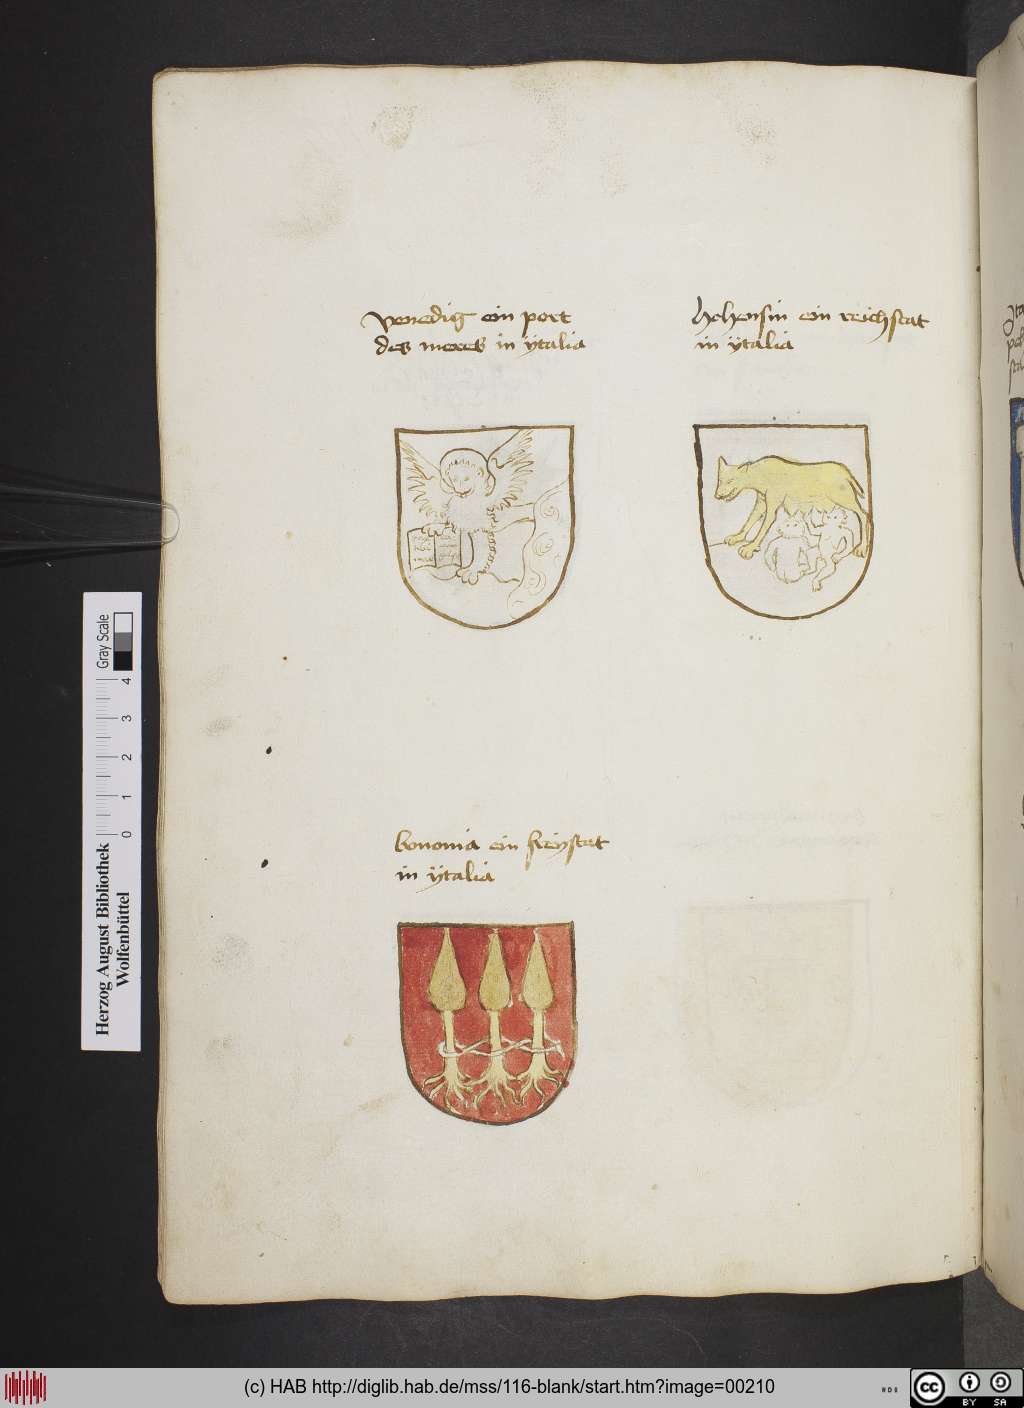 venedig ein port
des meres in ÿtalia
hohensin ein reichstat
in ÿtalia
bononia ein freÿstat
in ÿtalia
Herzog August Bibliothek
Wolfenbüttel
0 1 2 3 4
Gray Scale
(c) HAB http://diglib.hab.de/mss/116-blank/start.htm?image=00210
cc
BY SA